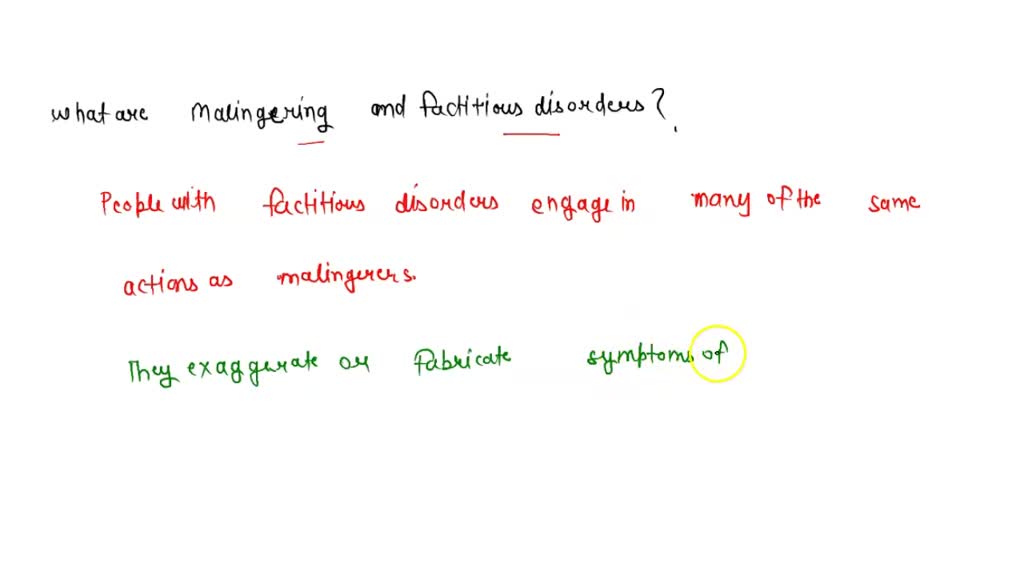 what are malingering and factitious disorders?
People with factitious disorders engage in many of the same
actions as malingerers.
They exaggerate or fabricate symptoms of